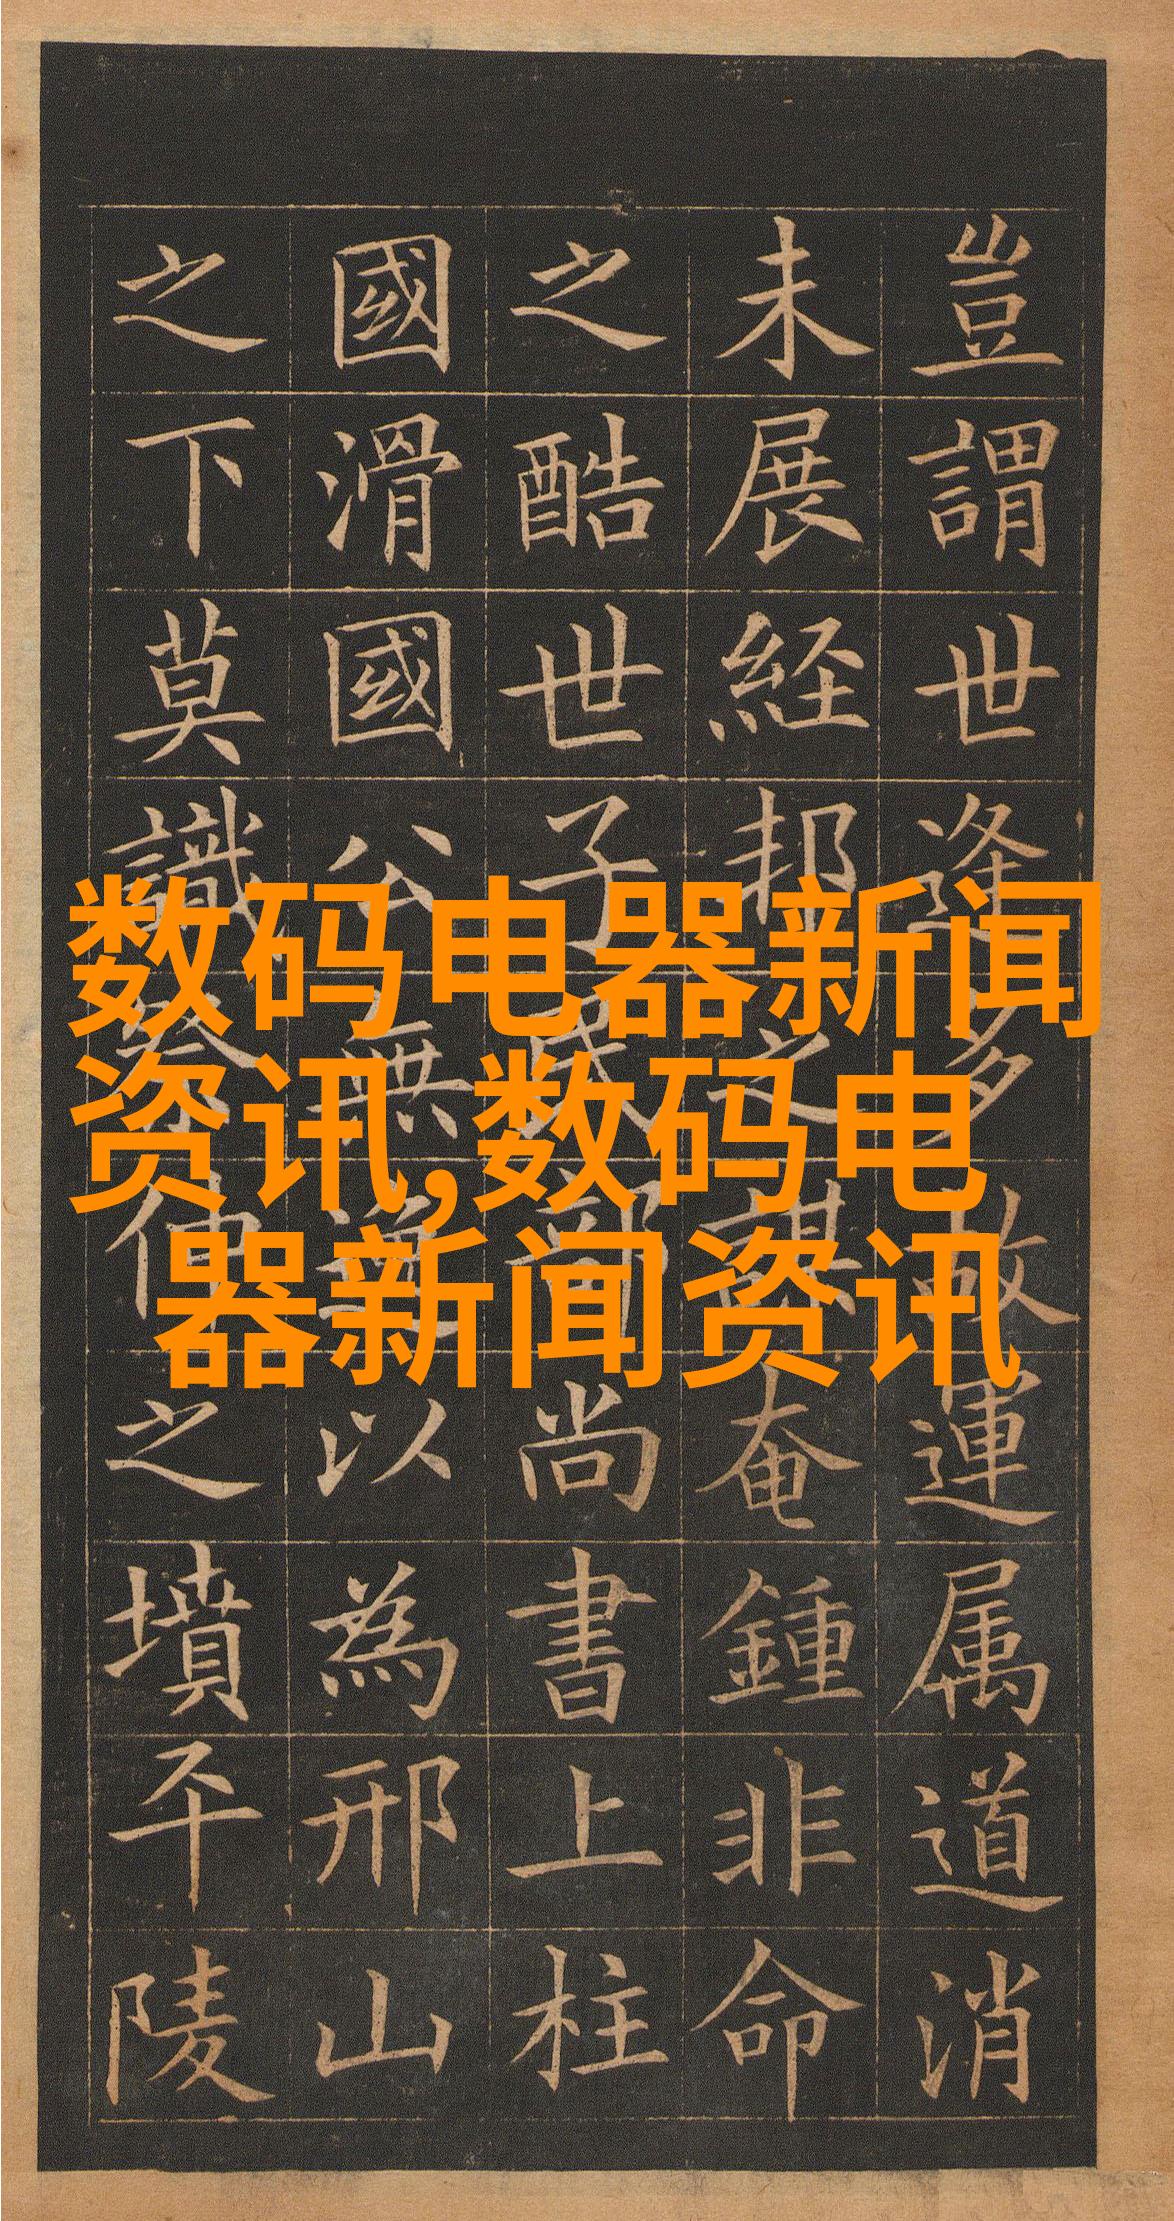 数码电器新闻
资讯,数码电
器新闻资讯
豈謂世逢多故運属道消
未展經邦之謀奄鍾非命
之酷世子民部尚書上柱
國滑國公無逸以為邢山
之下莫識祭仲之墳平陵